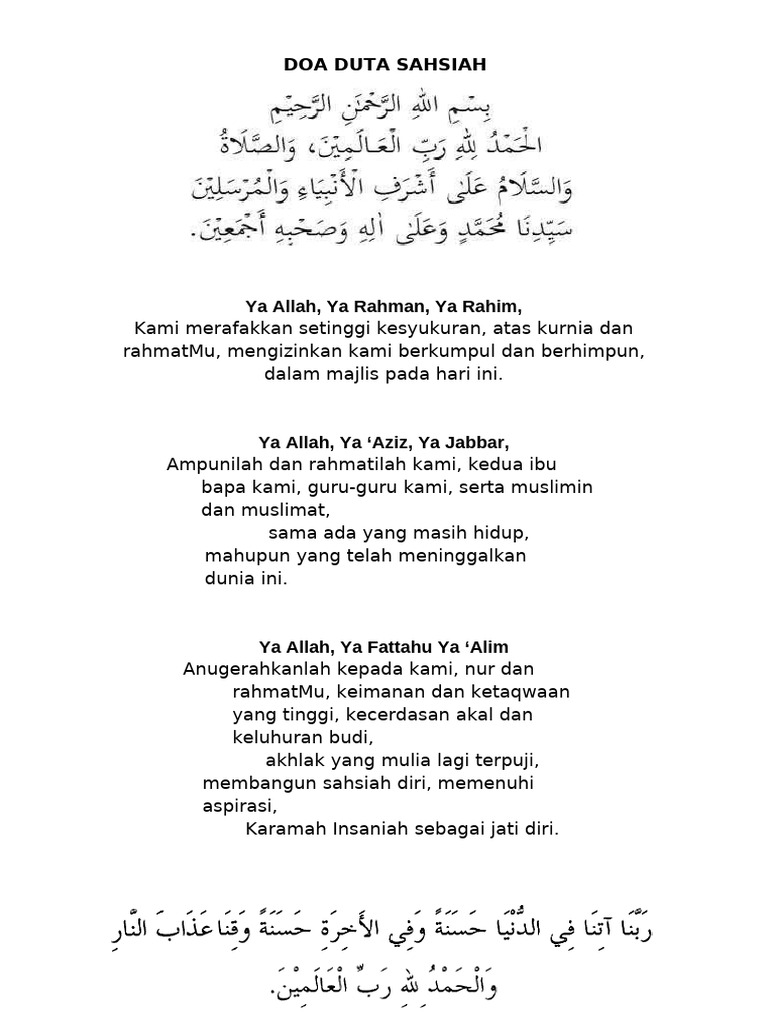 DOA DUTA SAHSIAH
بِسْمِ اللهِ الرَّحْمٰنِ الرَّحِيْمِ
الْحَمْدُ لِلّٰهِ رَبِّ الْعَالَمِيْنَ، وَالصَّلَاةُ
وَالسَّلَامُ عَلَى أَشْرَفِ الْأَنْبِيَاءِ وَالْمُرْسَلِيْنَ
سَيِّدِنَا مُحَمَّدٍ وَعَلَى اٰلِهِ وَصَحْبِهِ أَجْمَعِيْنَ.
Ya Allah, Ya Rahman, Ya Rahim,
Kami merafakkan setinggi kesyukuran, atas kurnia dan
rahmatMu, mengizinkan kami berkumpul dan berhimpun,
dalam majlis pada hari ini.
Ya Allah, Ya ‘Aziz, Ya Jabbar,
Ampunilah dan rahmatilah kami, kedua ibu
bapa kami, guru-guru kami, serta muslimin
dan muslimat,
sama ada yang masih hidup,
mahupun yang telah meninggalkan
dunia ini.
Ya Allah, Ya Fattahu Ya ‘Alim
Anugerahkanlah kepada kami, nur dan
rahmatMu, keimanan dan ketaqwaan
yang tinggi, kecerdasan akal dan
keluhuran budi,
akhlak yang mulia lagi terpuji,
membangun sahsiah diri, memenuhi
aspirasi,
Karamah Insaniah sebagai jati diri.
رَبَّنَا آتِنَا فِي الدُّنْيَا حَسَنَةً وَفِي الأَخِرَةِ حَسَنَةً وَقِنَا عَذَابَ النَّارِ
وَالْحَمْدُ لِلّٰهِ رَبِّ الْعَالَمِيْنَ.